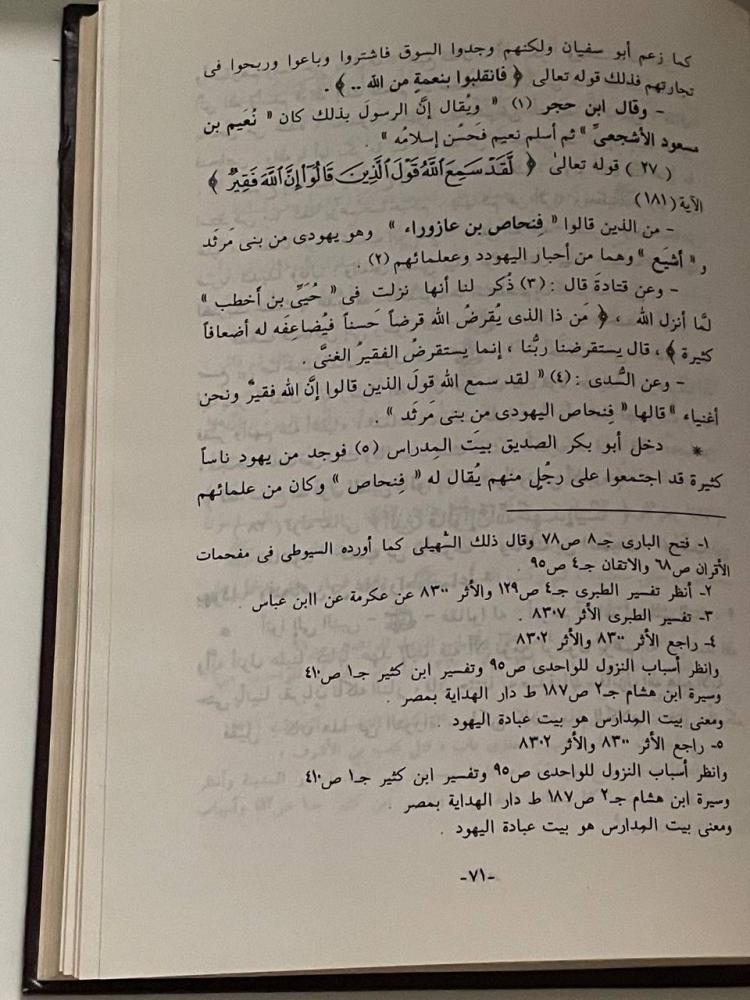 كما زعم أبو سفيان ولكنهم وجدوا السوق فاشتروا وباعوا وربحوا فى
تجارتهم فذلك قوله تعالى ﴿ فَانقلبوا بنعمةٍ من الله .. ﴾ .
– وقال ابن حجر (١) « ويُقال إنَّ الرسولَ بذلك كان « نُعَيم بن
مسعود الأشجعىِّ » ثم أسلم نعيم فَحَسُن إسلامُه » .
( ٢٧ ) قوله تعالىٰ ﴿ لَّقَدْ سَمِعَ ٱللَّهُ قَوْلَ ٱلَّذِينَ قَالُوٓا۟ إِنَّ ٱللَّهَ فَقِيرٌ ﴾
الآية (١٨١)
– من الذين قالوا « فِنحاص بن عازوراء » وهو يهودى من بنى مَرثَد
و « أشيَع » وهما من أحبار اليهودد وععلمائهم (٢) .
– وعن قتادةَ قال : (٣) ذُكر لنا أنها نزلت فى « حُيَىِّ بن أخطب »
لمَّا أنزل الله ، ﴿ مَن ذا الذى يُقرضُ الله قرضاً حَسناً فيُضاعِفَه له أضعافاً
كثيرة ﴾ ، قال يستقرضنا ربُّنا ، إنما يستقرضُ الفقيرُ الغنىَّ .
– وعن السُّدى : (٤) « لقد سمع الله قولَ الذين قالوا إنَّ الله فقيرٌ ونحن
أغنياء » قالها « فِنحاص اليهودى من بنى مَرثَد » .
* دخل أبو بكر الصديق بيتَ المِدراس (٥) فوجد من يهود ناساً
كثيرة قد اجتمعوا على رجُلٍ منهم يُقال له « فِنحاص » وكان من علمائهم
١– فتح البارى جـ٨ ص٧٨ وقال ذلك السُّهيلى كما أورده السيوطى فى مفحمات
الأقران ص٦٨ والاتقان جـ٤ ص٩٥ .
٢– أنظر تفسير الطبرى جـ٤ ص١٢٩ والأثر ٨٣٠٠ عن عكرمة عن اابن عباس .
٣– تفسير الطبرى الأثر ٨٣٠٧ .
٤– راجع الأثر ٨٣٠٠ والأثر ٨٣٠٢
وانظر أسباب النزول للواحدى ص٩٥ وتفسير ابن كثير جـ١ ص٤١٠
وسيرة ابن هشام جـ٢ ص١٨٧ ط دار الهداية بمصر .
ومعنى بيت المِدارس هو بيت عبادة اليهود .
٥– راجع الأثر ٨٣٠٠ والأثر ٨٣٠٢
وانظر أسباب النزول للواحدى ص٩٥ وتفسير ابن كثير جـ١ ص٤١٠
وسيرة ابن هشام جـ٢ ص١٨٧ ط دار الهداية بمصر .
ومعنى بيت المِدارس هو بيت عبادة اليهود .
–٧١–